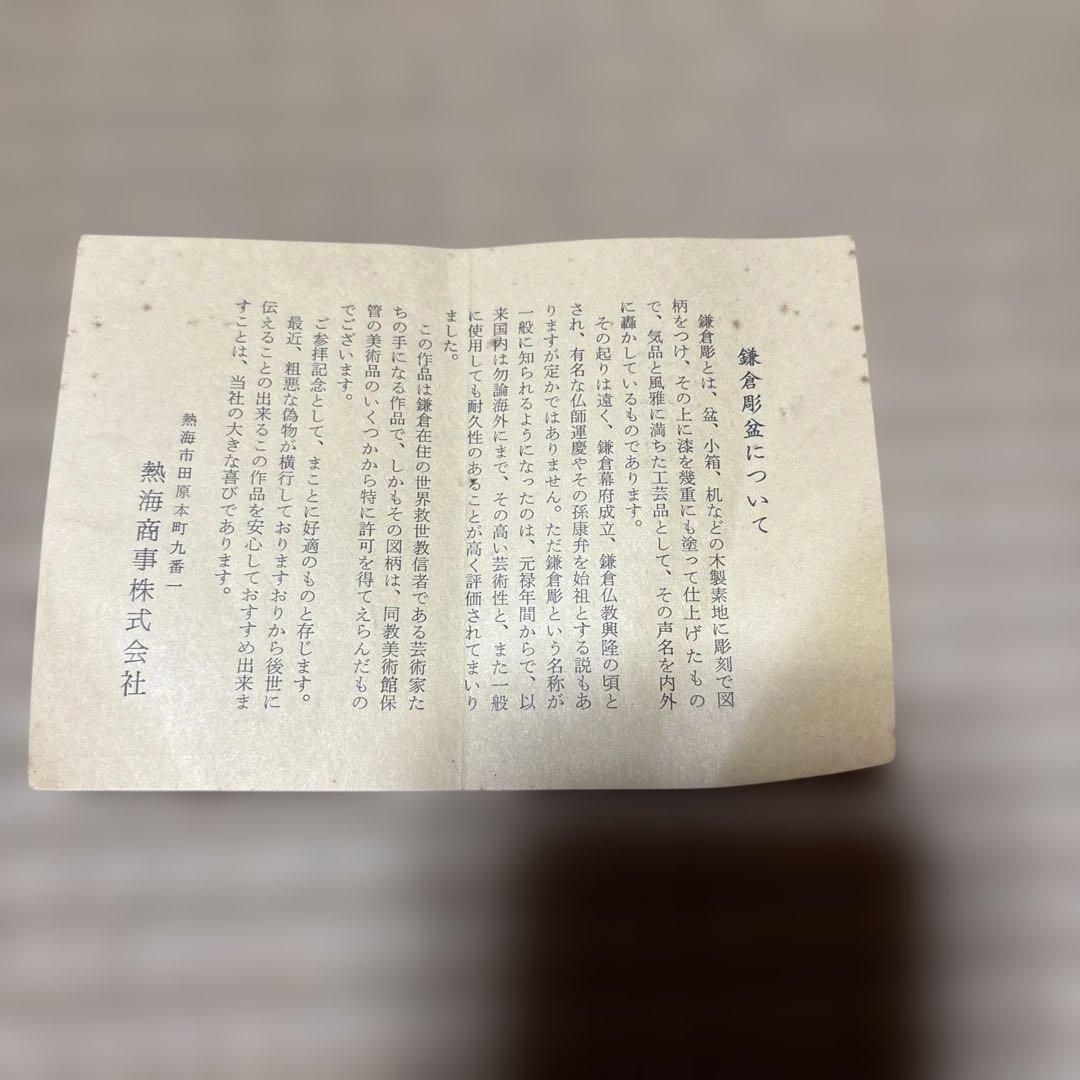 鎌倉彫盆について
鎌倉彫とは、盆、小箱、机などの木製素地に彫刻で図
柄をつけ、その上に漆を幾重にも塗って仕上げたもの
で、気品と風雅に満ちた工芸品として、その声名を内外
に轟かしているものであります。
その起りは遠く、鎌倉幕府成立、鎌倉仏教興隆の頃と
され、有名な仏師運慶やその孫康弁を始祖とする説もあ
りますが定かではありません。ただ鎌倉彫という名称が
一般に知られるようになったのは、元禄年間からで、以
来国内は勿論海外にまで、その高い芸術性と、また一般
に使用しても耐久性のあることが高く評価されてまいり
ました。
この作品は鎌倉在住の世界救世教信者である芸術家た
ちの手になる作品で、しかもその図柄は、同教美術館保
管の美術品のいくつかから特に許可を得てえらんだもの
でございます。
ご参拝記念として、まことに好適のものと存じます。
最近、粗悪な偽物が横行しておりますおりから後世に
伝えることの出来るこの作品を安心しておすすめ出来ま
すことは、当社の大きな喜びであります。
熱海市田原本町九番一
熱海商事株式会社